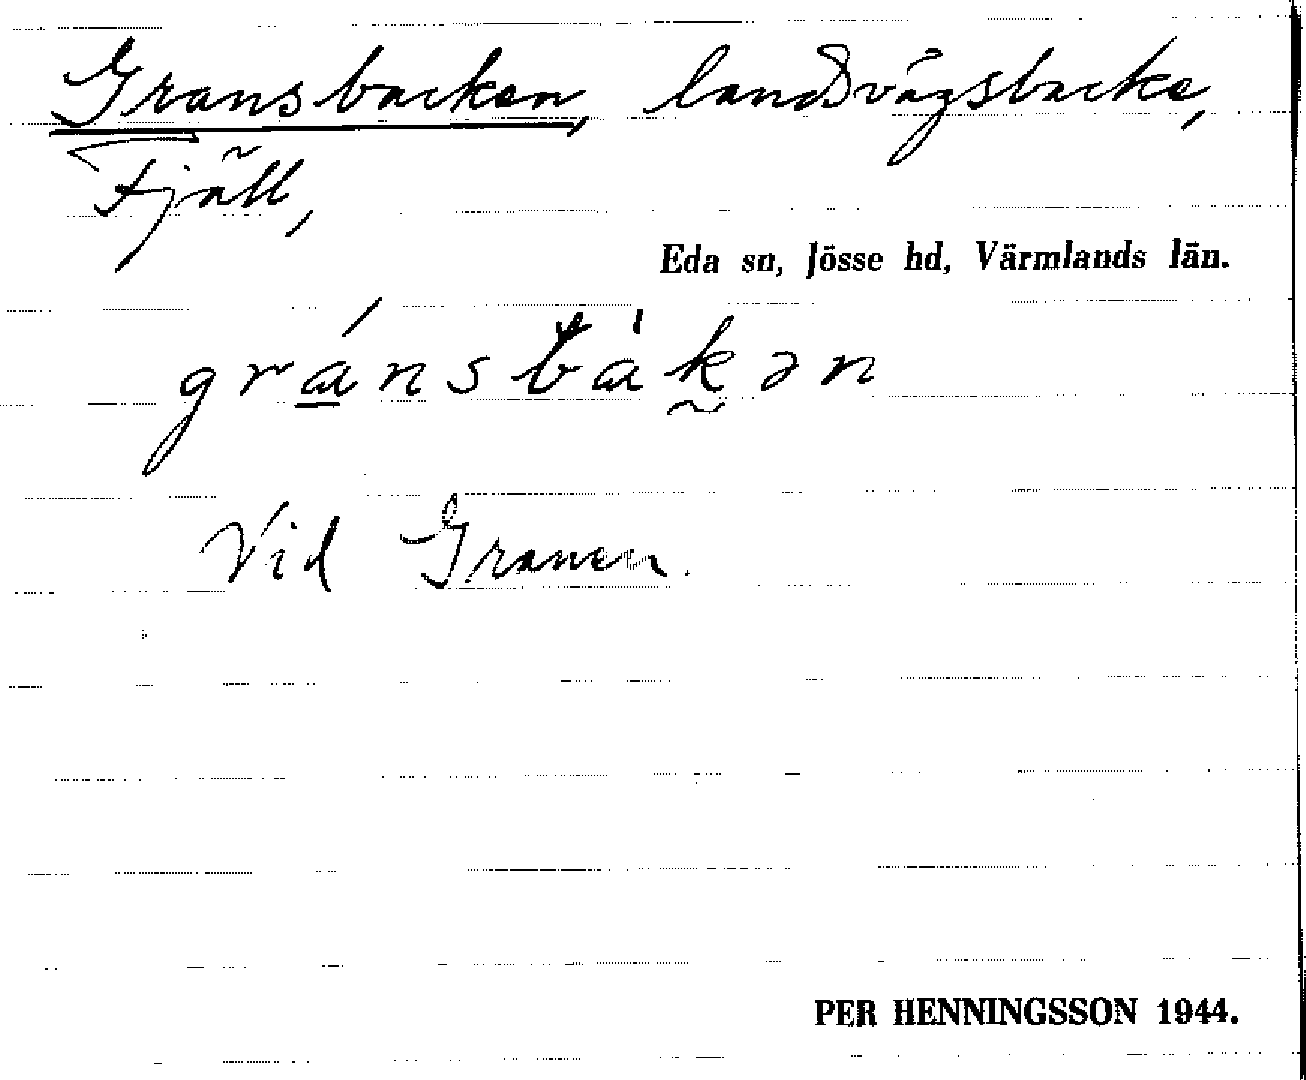 Gransbacken, landsvägsbacke,
Fjäll,
Eda sn, Jösse hd, Värmlands län.
gránsbàkən
Vid Granen.
PER HENNINGSSON 1944.